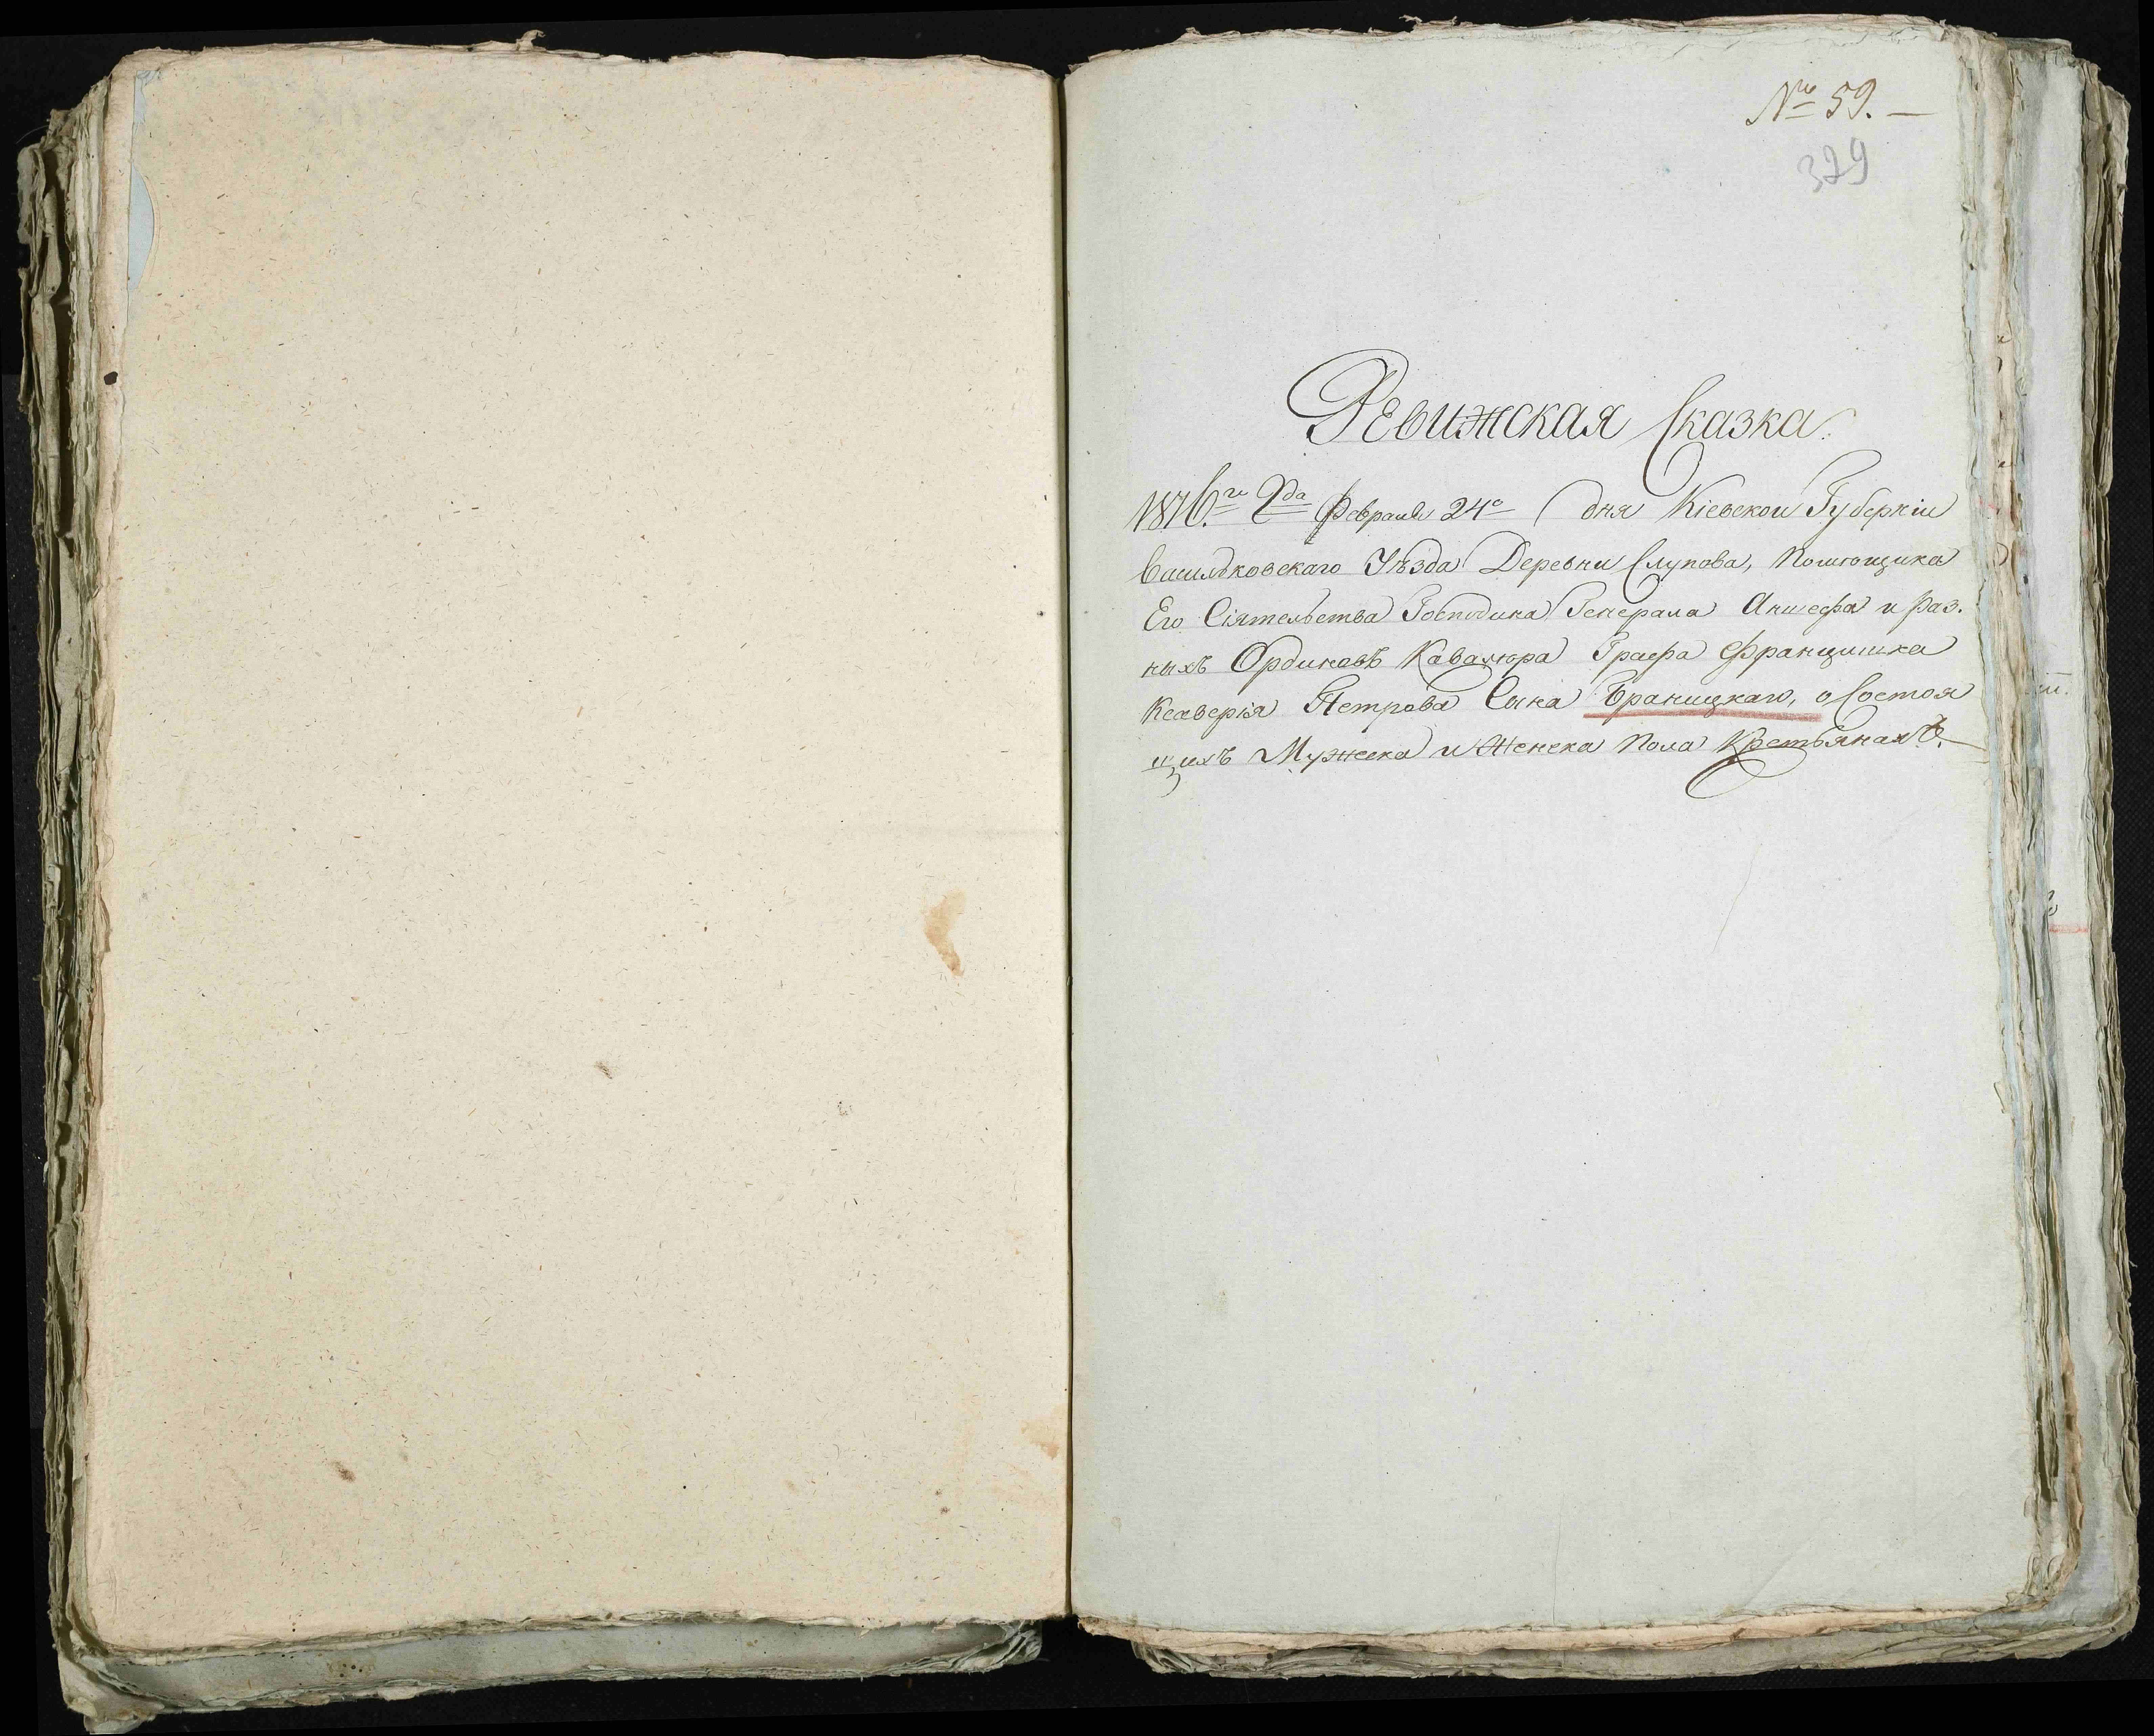 № 59.
329
Ревижская Сказка.
1816.го Года Февраля 24о дня Кіевской Губерніи
Василковскаго Уѣзда Деревни Слупова, Помѣщика
Его Сіятельства Господина Генерала Аншефа и Раз.
ныхъ Ординовъ Кавалѣра Графа Францишка
Ксаверія Петрова Сына Браницкаго, о Состоя
щихъ Мужеска и Женска Пола Крестьянахъ.